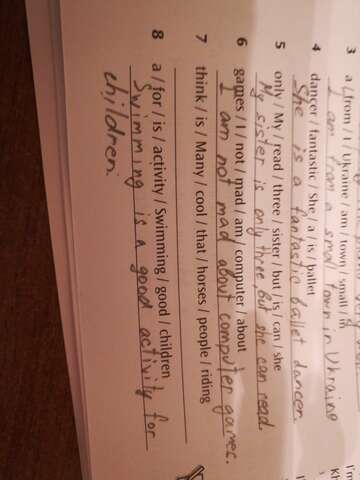 3 a / from / I / Ukraine / am / town / small / in
I am from a small town in Ukraine
4 dancer / fantastic / She / a / is / ballet
She is a fantastic ballet dancer.
5 only / My / read / three / sister / but / is / can / she
My sister is only three, but she can read.
6 games / I / not / mad / am / computer / about
I am not mad about computer games.
7 think / is / Many / cool / that / horses / people / riding
8 a / for / is / activity / Swimming / good / children
Swimming is a good activity for
children.
I'm